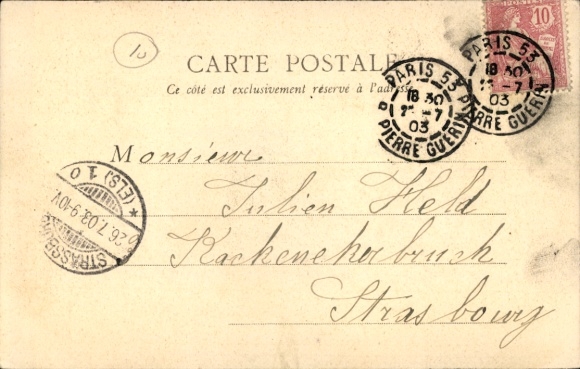 10
CARTE POSTALE
Ce côté est exclusivement réservé à l'adresse
10
PARIS 53
18 30
-7
03
PIERRE GUERIN
PARIS 53
18 30
-7
03
PIERRE GUERIN
Monsieur
Julien Held
Strasbourg
STRASSBURG
26.7.03. 9-10V.
* (ELS.) 1 o